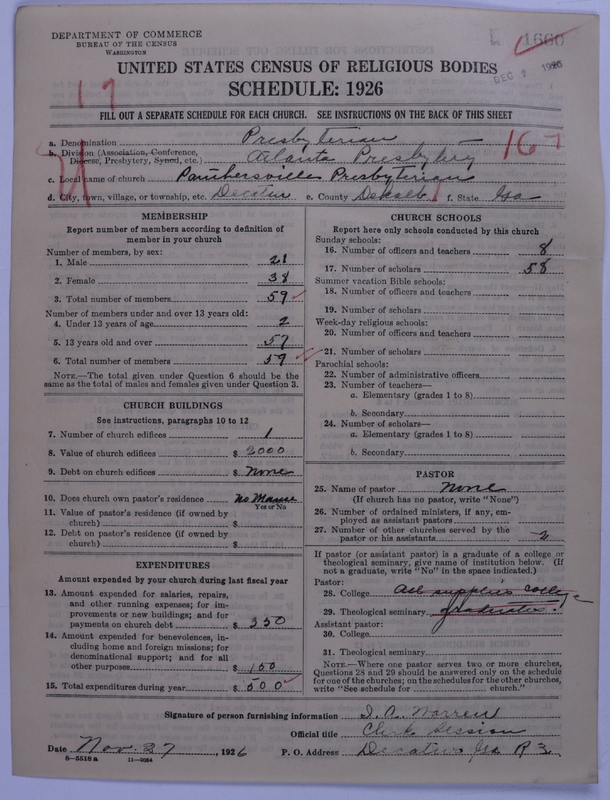 DEPARTMENT OF COMMERCE
BUREAU OF THE CENSUS
WASHINGTON
1660
DEC 2 1926
UNITED STATES CENSUS OF RELIGIOUS BODIES
SCHEDULE: 1926
17
FILL OUT A SEPARATE SCHEDULE FOR EACH CHURCH. SEE INSTRUCTIONS ON THE BACK OF THIS SHEET
167
a. Denomination Presbyterian
b. Division (Association, Conference, Diocese, Presbytery, Synod, etc.) Atlanta Presbytery
c. Local name of church Panthersville Presbyterian
d. City, town, village, or township, etc. Decatur e. County Dekalb f. State Ga
MEMBERSHIP
Report number of members according to definition of
member in your church
Number of members, by sex:
1. Male 21
2. Female 38
3. Total number of members 59
Number of members under and over 13 years old:
4. Under 13 years of age 2
5. 13 years old and over 57
6. Total number of members 59
NOTE.—The total given under Question 6 should be the
same as the total of males and females given under Question 3.
CHURCH BUILDINGS
See instructions, paragraphs 10 to 12
7. Number of church edifices 1
8. Value of church edifices $ 2000
9. Debt on church edifices $ None
10. Does church own pastor's residence No Manse
Yes or No
11. Value of pastor's residence (if owned by
church) $
12. Debt on pastor's residence (if owned by
church) $
EXPENDITURES
Amount expended by your church during last fiscal year
13. Amount expended for salaries, repairs,
and other running expenses; for im-
provements or new buildings; and for
payments on church debt $ 350
14. Amount expended for benevolences, in-
cluding home and foreign missions; for
denominational support; and for all
other purposes $ 150
15. Total expenditures during year $ 500
CHURCH SCHOOLS
Report here only schools conducted by this church
Sunday schools:
16. Number of officers and teachers 8
17. Number of scholars 58
Summer vacation Bible schools:
18. Number of officers and teachers
19. Number of scholars
Week-day religious schools:
20. Number of officers and teachers
21. Number of scholars
Parochial schools:
22. Number of administrative officers
23. Number of teachers—
a. Elementary (grades 1 to 8)
b. Secondary
24. Number of scholars—
a. Elementary (grades 1 to 8)
b. Secondary
PASTOR
25. Name of pastor None
(If church has no pastor, write "None")
26. Number of ordained ministers, if any, em-
ployed as assistant pastors
27. Number of other churches served by the
pastor or his assistants 2
If pastor (or assistant pastor) is a graduate of a college or
theological seminary, give name of institution below. (If
not a graduate, write "No" in the space indicated.)
Pastor:
28. College All supplies College
29. Theological seminary graduates.
Assistant pastor:
30. College
31. Theological seminary
NOTE.—Where one pastor serves two or more churches,
Questions 28 and 29 should be answered only on the schedule
for one of the churches; on the schedules for the other churches,
write "See schedule for church."
Signature of person furnishing information J. A. Warren
Official title Clerk Session
Date Nov. 27, 1926 P. O. Address Decatur Ga R 3
8—5518 a 11—9054